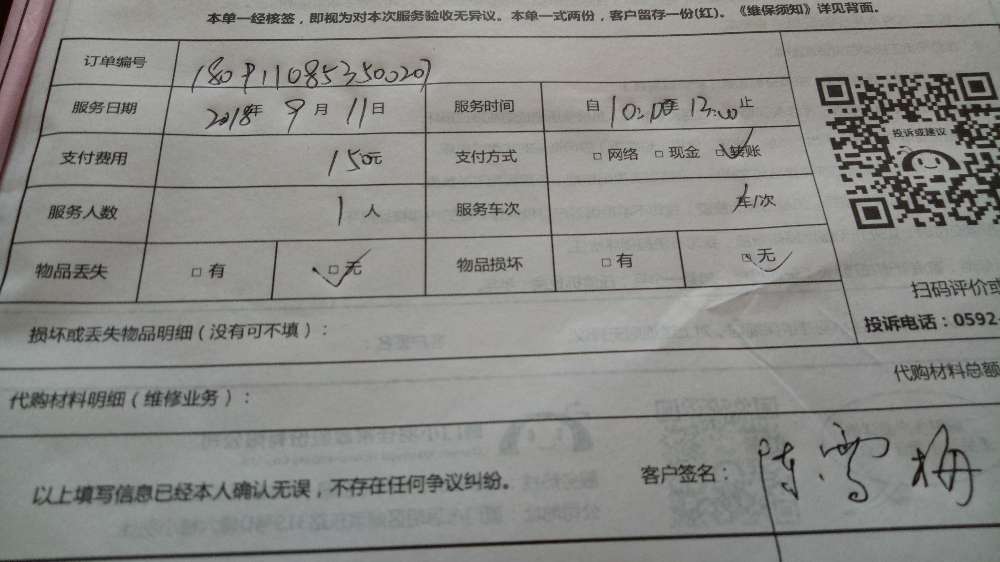 本单一经核签，即视为对本次服务验收无异议。本单一式两份，客户留存一份(红)。《维保须知》详见背面。
订单编号 180911085350020
服务日期 2018年 9月 11日 服务时间 自 10:00至 12:00止
支付费用 150元 支付方式 □ 网络 □ 现金 □ 转账
服务人数 1 人 服务车次 车/次
物品丢失 □ 有 □ 无 物品损坏 □ 有 □ 无
投诉或建议
扫码评价或
投诉电话：0592
损坏或丢失物品明细（没有可不填）：
代购材料明细（维修业务）：
代购材料总额
以上填写信息已经本人确认无误，不存在任何争议纠纷。
客户签名：陈雪梅